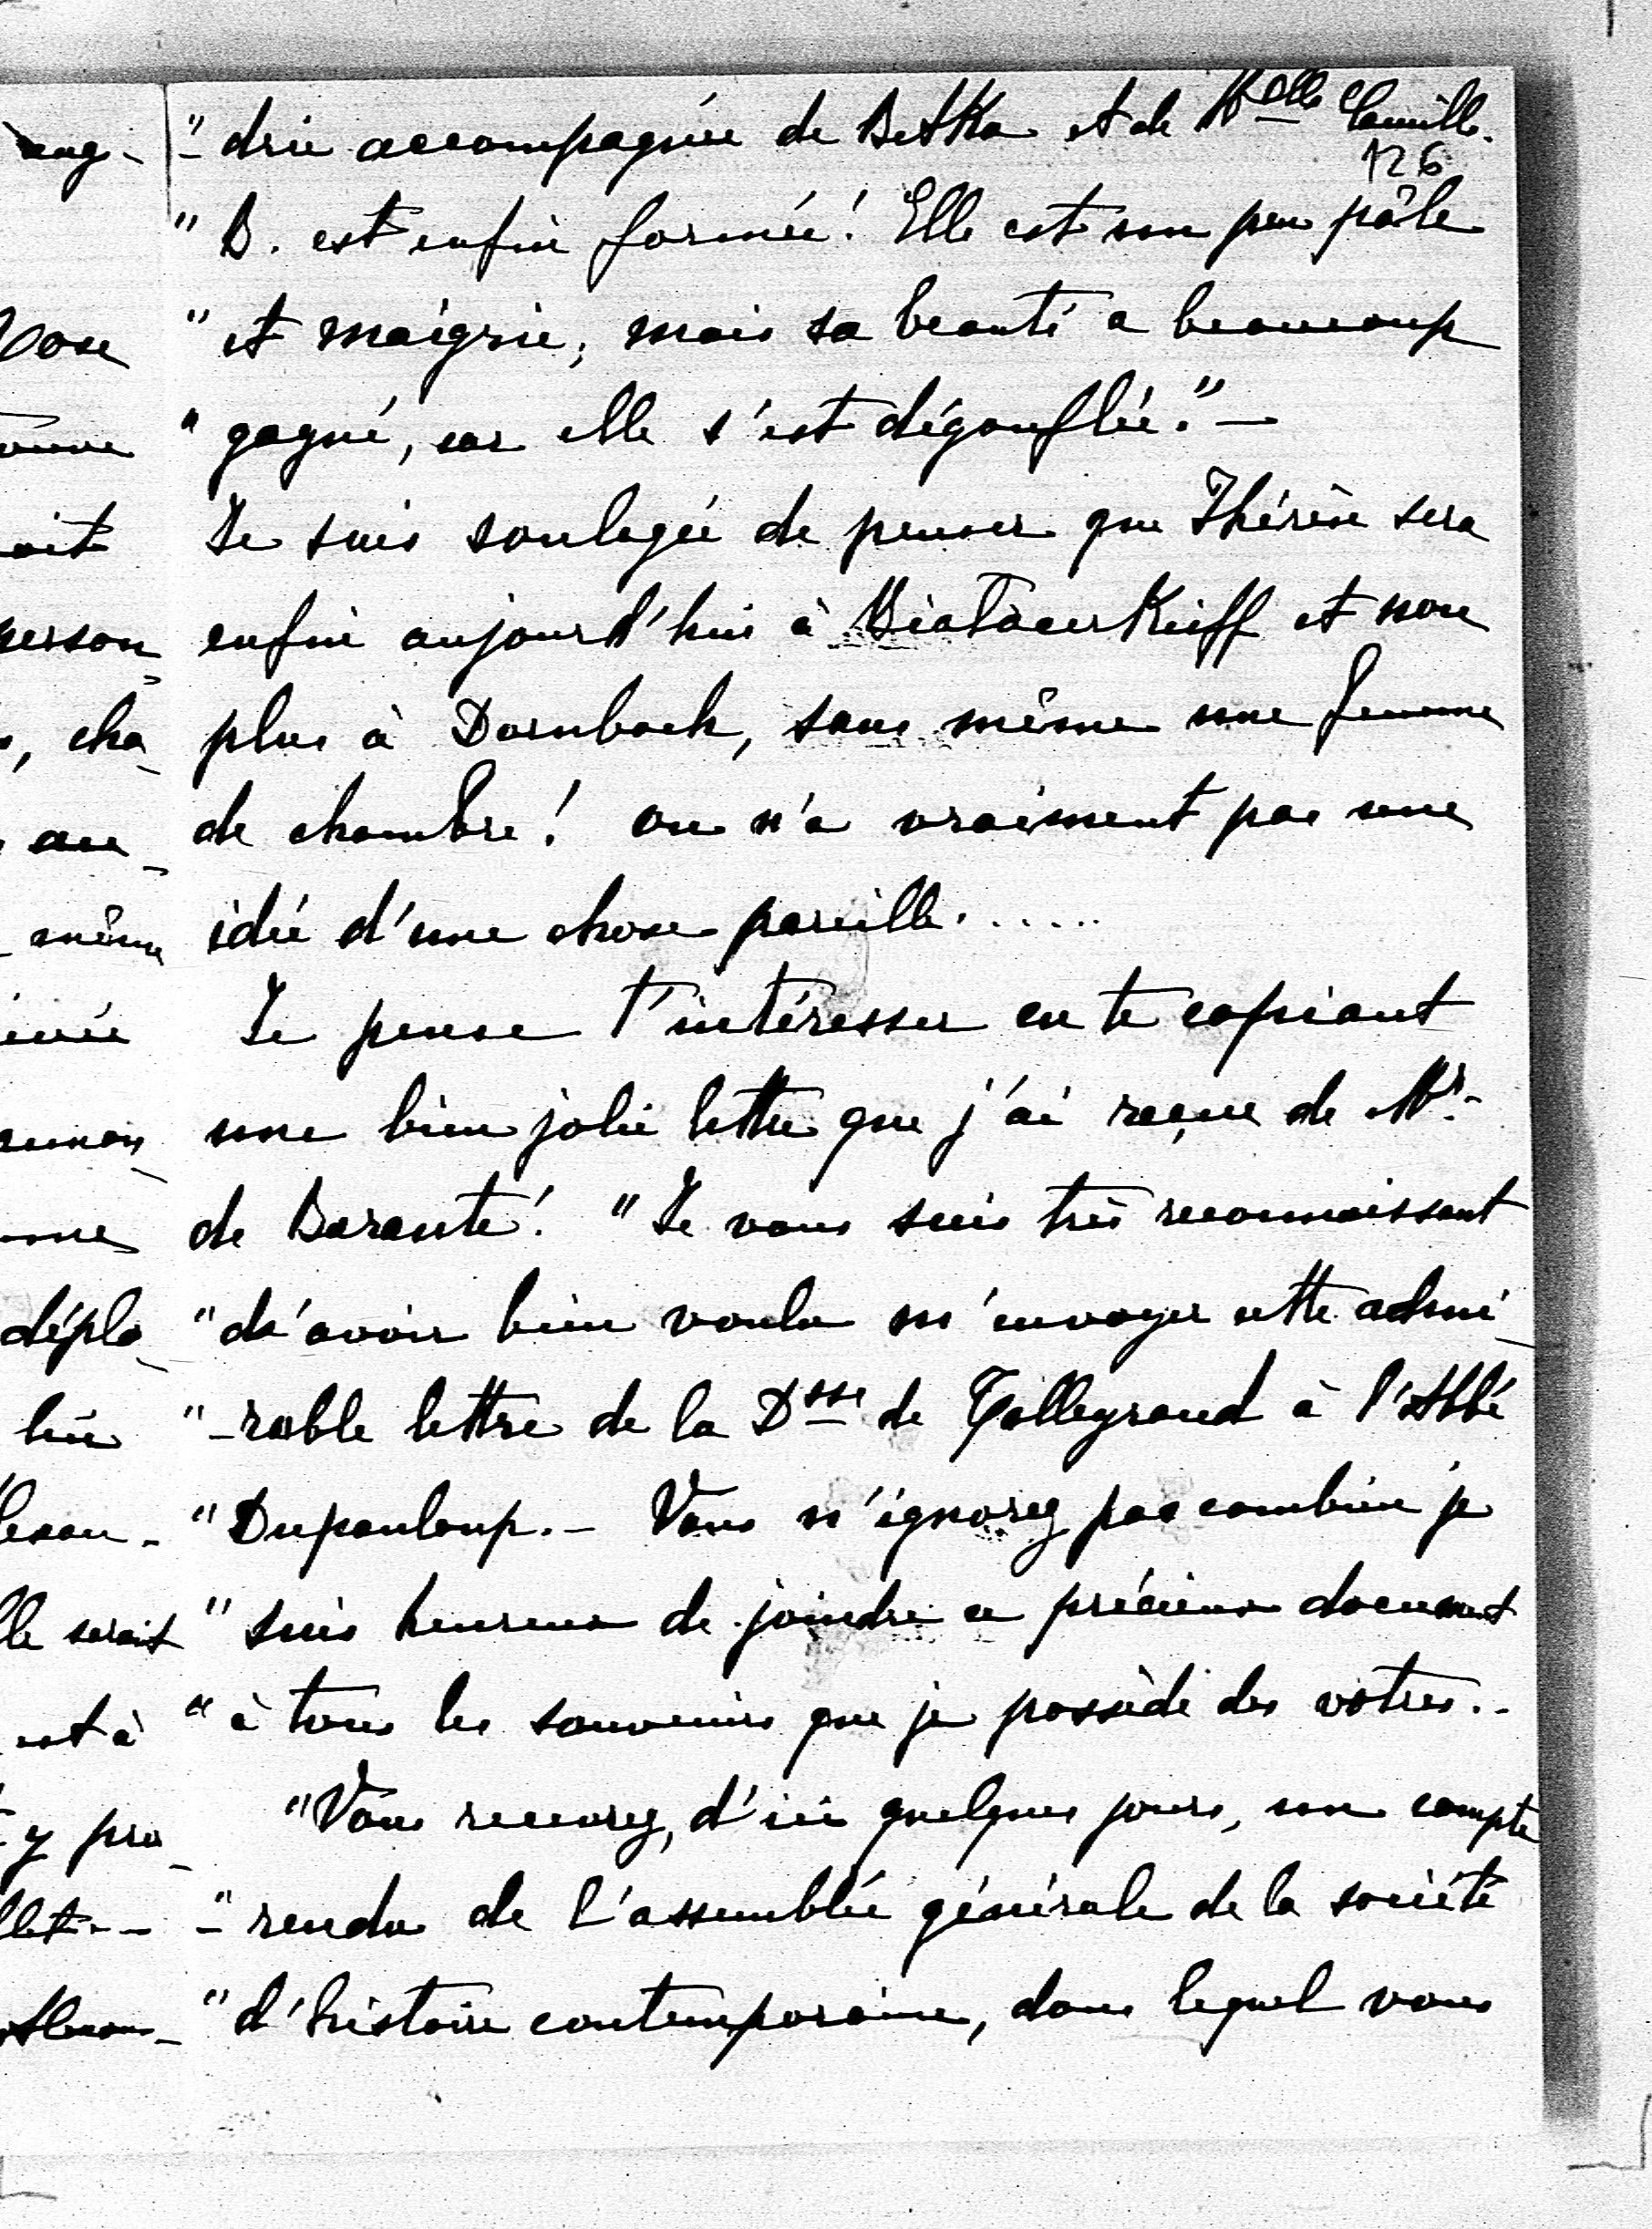 "-drie accompagnée de Betka et de Melle Camille.
126
"B. est enfin formée! Elle est un peu pâle
"et maigrie, mais sa beauté a beaucoup
"gagné, car elle s'est dégonflée."—
Je suis soulagée de penser que Thérèse sera
enfin aujourd'hui à Biatacerkieff et non
plus à Dornbach, sans même une femme
de chambre! on n'a vraiment pas une
idée d'une chose pareille......
Je pense t'intéresser en te copiant
une bien jolie lettre que j'ai reçue de Mr.
de Barante! "Je vous suis très reconnaissant
"d'avoir bien voulu m'envoyer cette admi
"-rable lettre de la Dsse de Talleyrand à l'Abbé
"Dupanloup.- Vous n'ignorez pas combien je
"suis heureux de joindre ce précieux document
"à tous les souvenirs que je possède des votres..
"Vous recevrez, d'ici quelques jours, un compte
"-rendu de l'assemblée générale de la société
"d'histoire contemporaine, dans lequel vous